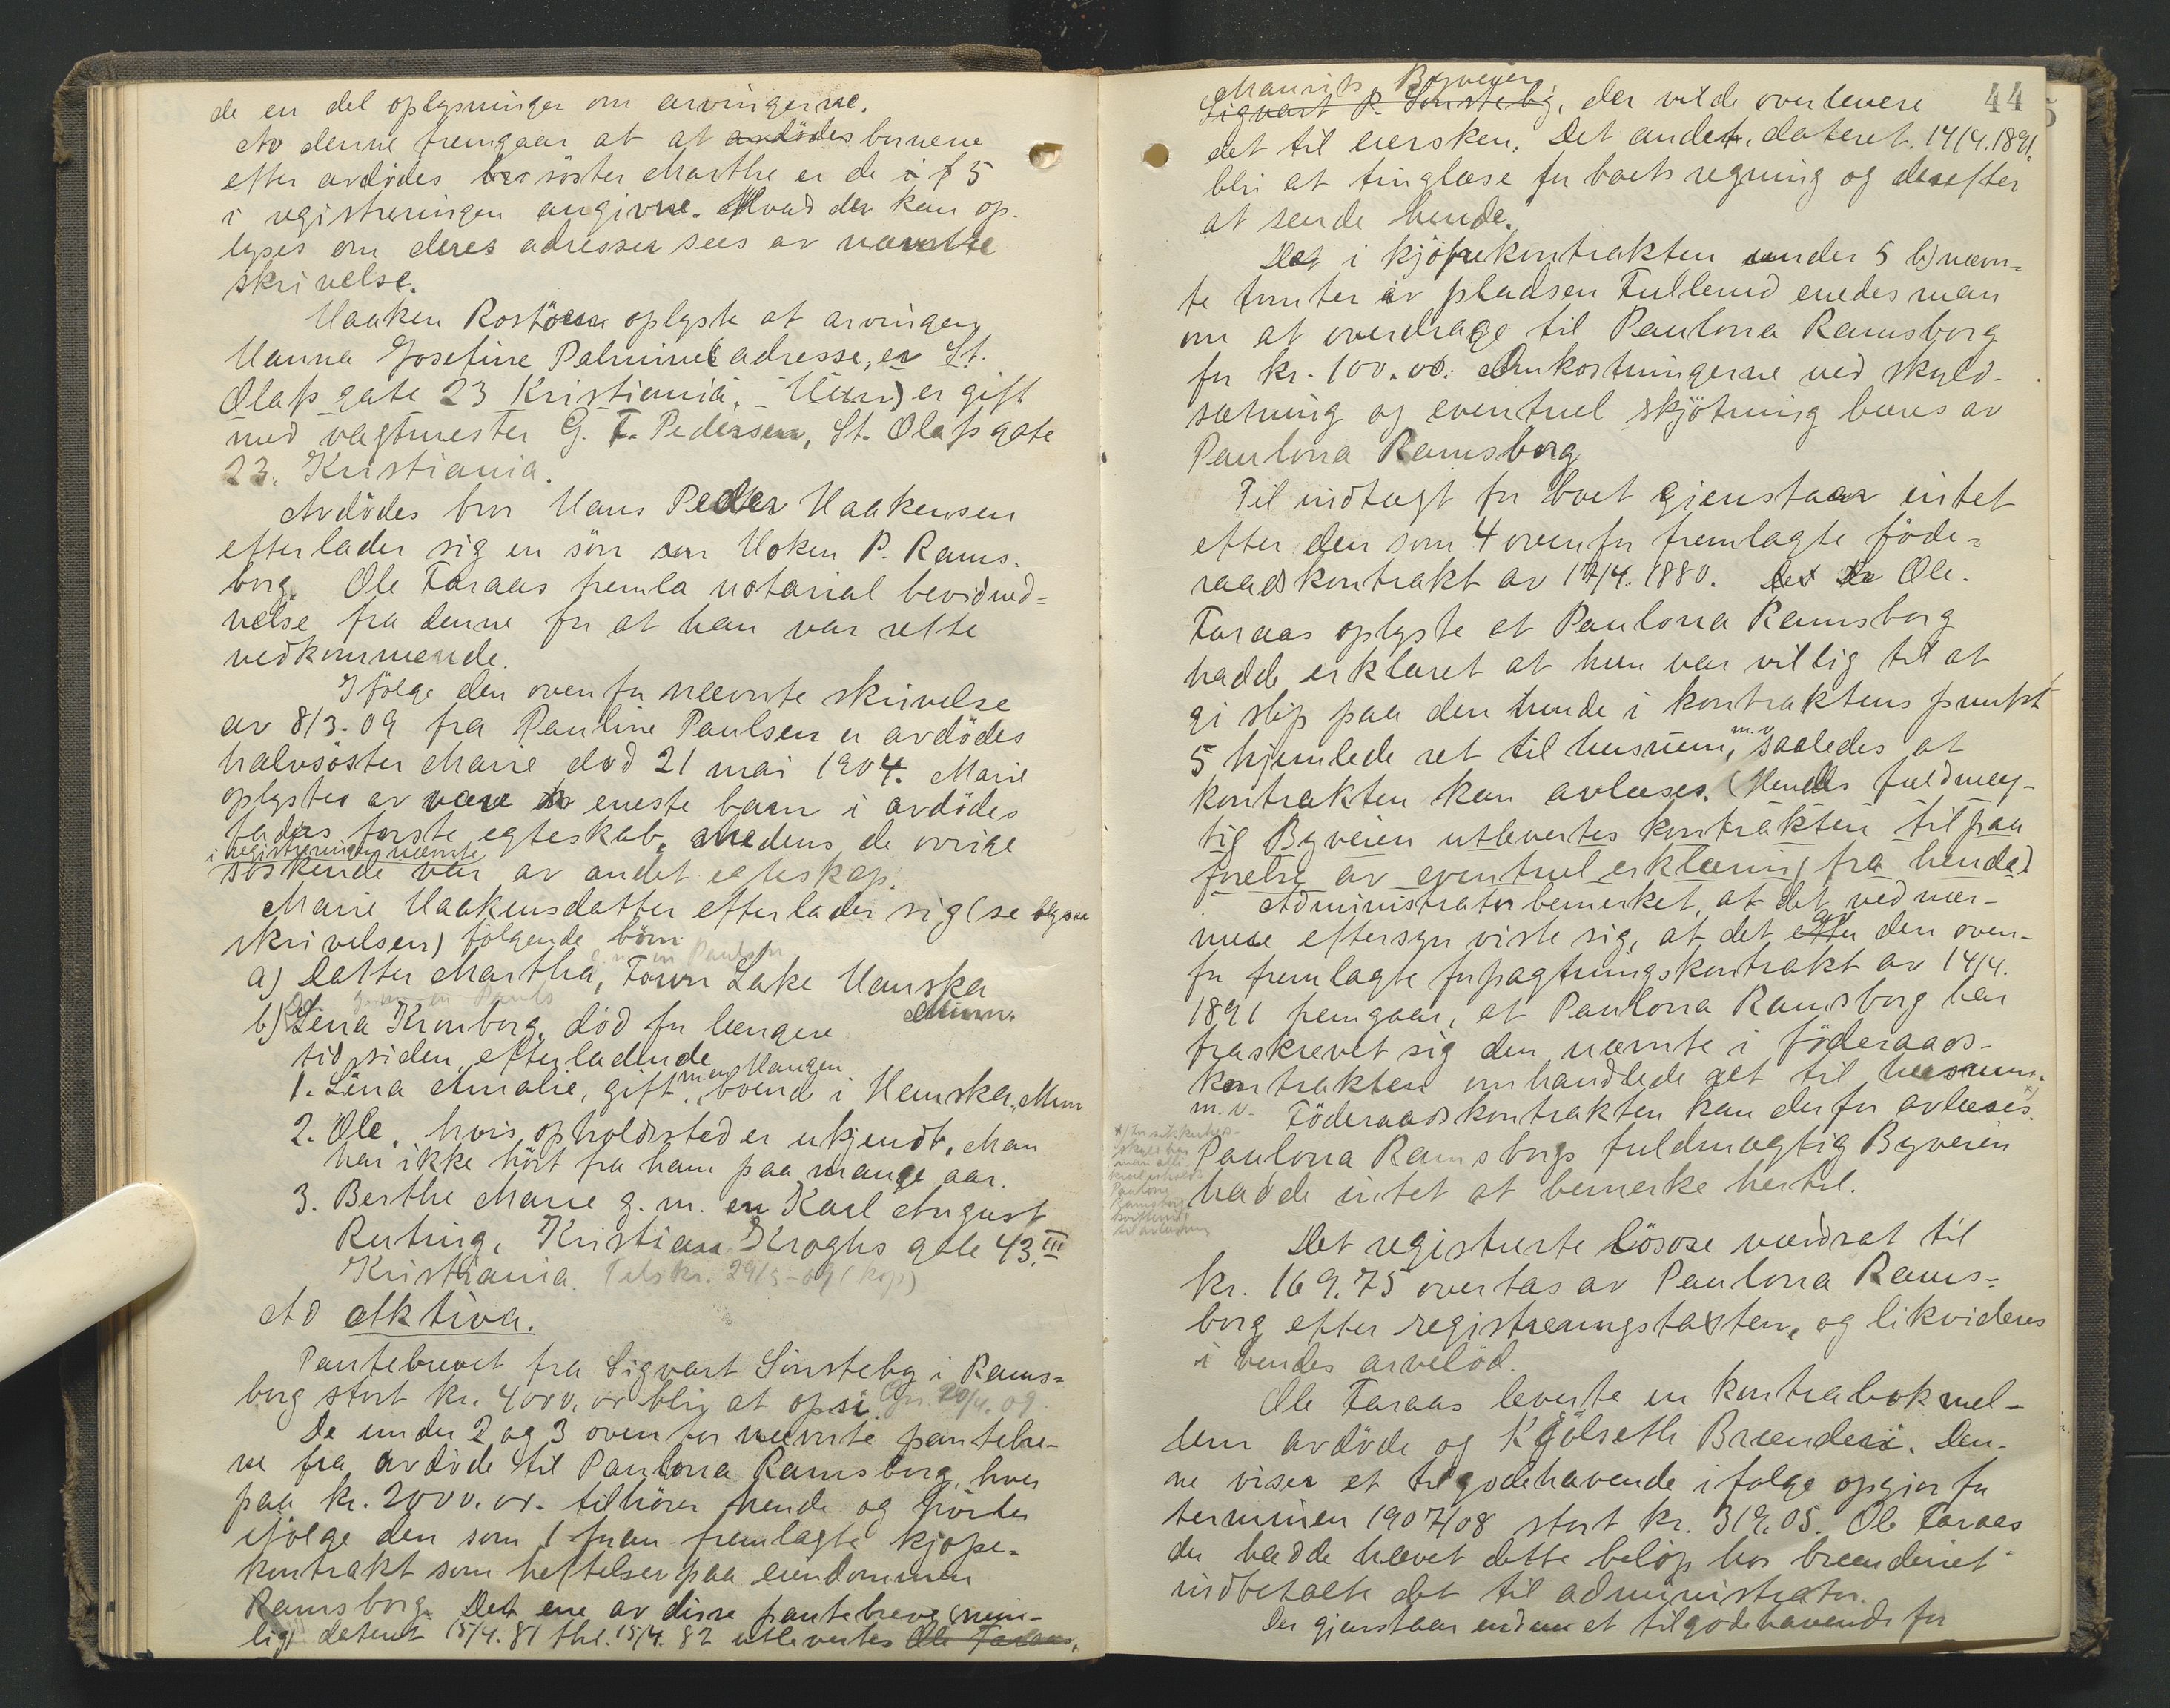 de en del oplysninger om arvingerne.
Av denne fremgaar at at avdödes börnene
efter avdödes söster Marthe er de i § 5
i registreringen angivne. Hvad der kan op-
lyses om deres adresser sees av nævnte
skrivelse.
Haaken Rostöen oplyste at arvingen
Hanna Josefine Palmines adresse, er St.
Olafs gate 23 Kristiania. Hun er gift
med vagtmester G. F. Pedersen, St. Olafs gate
23. Kristiania.
Avdödes bror Hans Peder Haakensen
efterlader sig en sön Hoken P. Rams-
borg. Ole Faraas fremla notarial bevidned-
velse fra denne for at han var rette
vedkommende.
Ifölge den ovenfor nævnte skrivelse
av 8/3-09 fra Pauline Paulsen er avdödes
halvsöster Marie död 21 mai 1904. Marie
oplystes av være eneste barn i avdödes
faders förste egteskab, medens de övrige
i registreringen nævnte
söskende var av andet egteskap.
Marie Haakensdatter efterlader sig (se
skrivelsen) fölgende börn
a) Datter Martha, Town Lake Hanska
Minn.
b) Lina Kronborg, död for længere
tid siden, efterladende
1. Lina Amalie, gift m. en Haugen, boende i Hanska, Minn
2. Ole, hvis opholdssted er ukjendt. Man
har ikke hört fra ham paa mange aar.
3. Berthe Marie g. m. en Karl August
Ruting, Kristian Kroghs gate 43 III
Kristiania. Tilskr. 29/5-09 (kop)
Ad aktiva.
Pantebrevet fra Sigvart Sönsteby i Rams-
borg stort kr. 4000,00 blir at opsi. 20/4. 09
De under 2 og 3 ovenfor nævnte pantebre-
ve fra avdöde til Paulona Ramsborg, hver
paa kr. 2000.00. tilhörer hende og hörer
ifölge den som 1 foran fremlagte kjöpe-
kontrakt som heftelser paa eiendommen
Ramsborg. Det ene av disse pantebreve (nem-
lig) dateret 15/4. 81 thl. 15/4. 82 utlevertes Ole Faraas,
44
Maurits Byveien
Sigvart P. Sönsteby, der vilde overlevere
det til eiersken. Det andet, dateret 14/4. 1891.
blir at tinglæse for boets regning og derefter
at sende hende.
Det i kjöpekontrakten under 5 b) nævn-
te tomter av pladsen Fullerud enedes man
om at overdrage til Paulona Ramsborg
for kr. 100.00. Omkostningerne ved skyld-
sætning og eventuel skjötning bæres av
Paulona Ramsborg
Til indtægt for boet gjenstaar intet
efter den som 4 ovenfor fremlagte föde-
raadskontrakt av 17/4. 1880. Ole
Faraas oplyste at Paulona Ramsborg
hadde erklæret at hun var villig til at
gi slip paa den hende i kontraktens punkt
5 hjemlede ret til husrum, m.v. saaledes at
kontrakten kan avlæses. (Hendes fuldmæg-
tig Byveien utlevertes kontrakten til paa
förelse av eventuel erklæring fra hende)
Administrator bemerket, at det ved nær-
mere eftersyn viste sig, at det av den oven-
for fremlagte forpagtningskontrakt av 14/4.
1891 fremgaar, at Paulona Ramsborg har
fraskrevet sig den nævnte i föderaads-
kontrakten omhandlede ret til husrum.
m. v. Föderaadskontrakten kan derfor avlæses. x)
Paulona Ramsborgs fuldmægtig Byveien
hadde intet at bemerke hertil.
Det registrerte lösöre værdsat til
kr. 169.75 overtas av Paulona Rams-
borg efter registreringstaksten, og likvideres
i hendes arvelöd.
Ole Faraas leverte en kontrabok mel-
lem avdöde og Kjölseth Brænderi. Den-
ne viser et tilgodehavende ifölge opgjör for
terminen 1907/08 stort kr. 319.05. Ole Faraas
der hadde hævet dette belöp hos brænderiet
indbetalte det til administrator.
Der gjenstaar endnu et tilgodehavende for